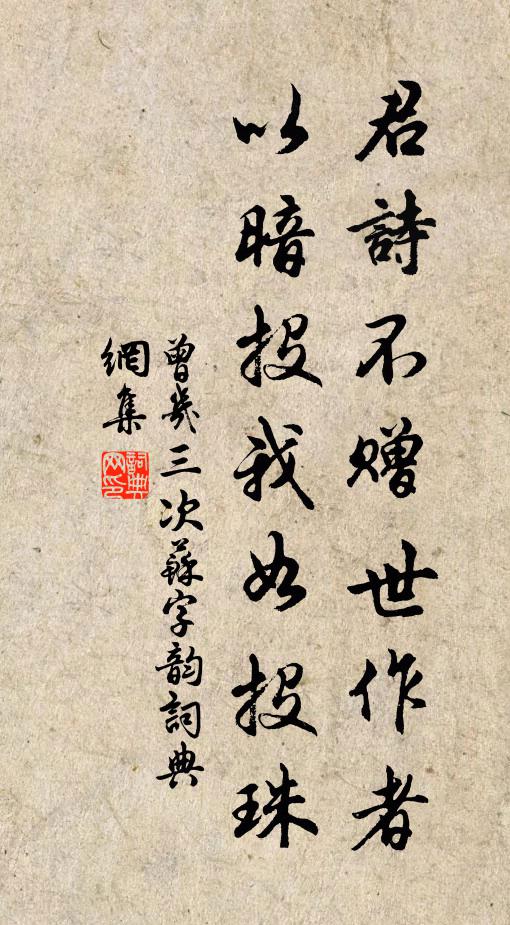 君詩不贈世作者
以暗投我如投珠
曾幾三次蘇字韵詞典
網集
詞典
网印